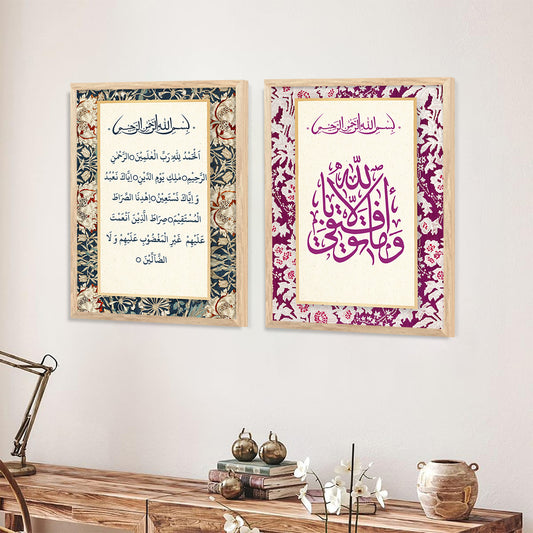 بسم الله الرحمن الرحيم
اَلْحَمْدُ لِلّٰهِ رَبِّ الْعٰلَمِيْنَ○الرَّحْمٰنِ
الرَّحِيْمِ○مٰلِكِ يَوْمِ الدِّيْنِ○ اِيَّاكَ نَعْبُدُ
وَ اِيَّاكَ نَسْتَعِيْنُ○اِهْدِنَا الصِّرَاطَ
الْمُسْتَقِيْمَ○صِرَاطَ الَّذِيْنَ اَنْعَمْتَ
عَلَيْهِمْ غَيْرِ الْمَغْضُوْبِ عَلَيْهِمْ وَ لَا
الضَّآلِّيْنَ ○
بسم الله الرحمن الرحيم
وما توفيقي إلا بالله